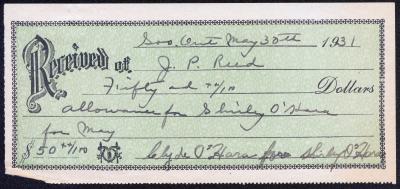 Soo. Ont May 30th 1931
Received of J. P. Reed
Fifty and xx/100 Dollars
allowance for Shirley O'Hara
for May
$50 xx/100 Clyde O'Hara for Shirley O'Hara